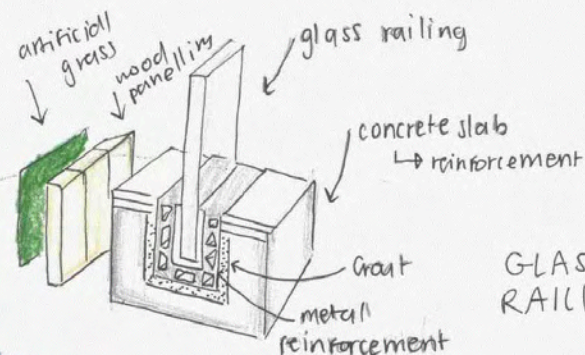 artificial
grass
wood
panelling
glass railing
concrete slab
↳ reinforcement
Grout
metall
reinforcement
GLAS
RAILI